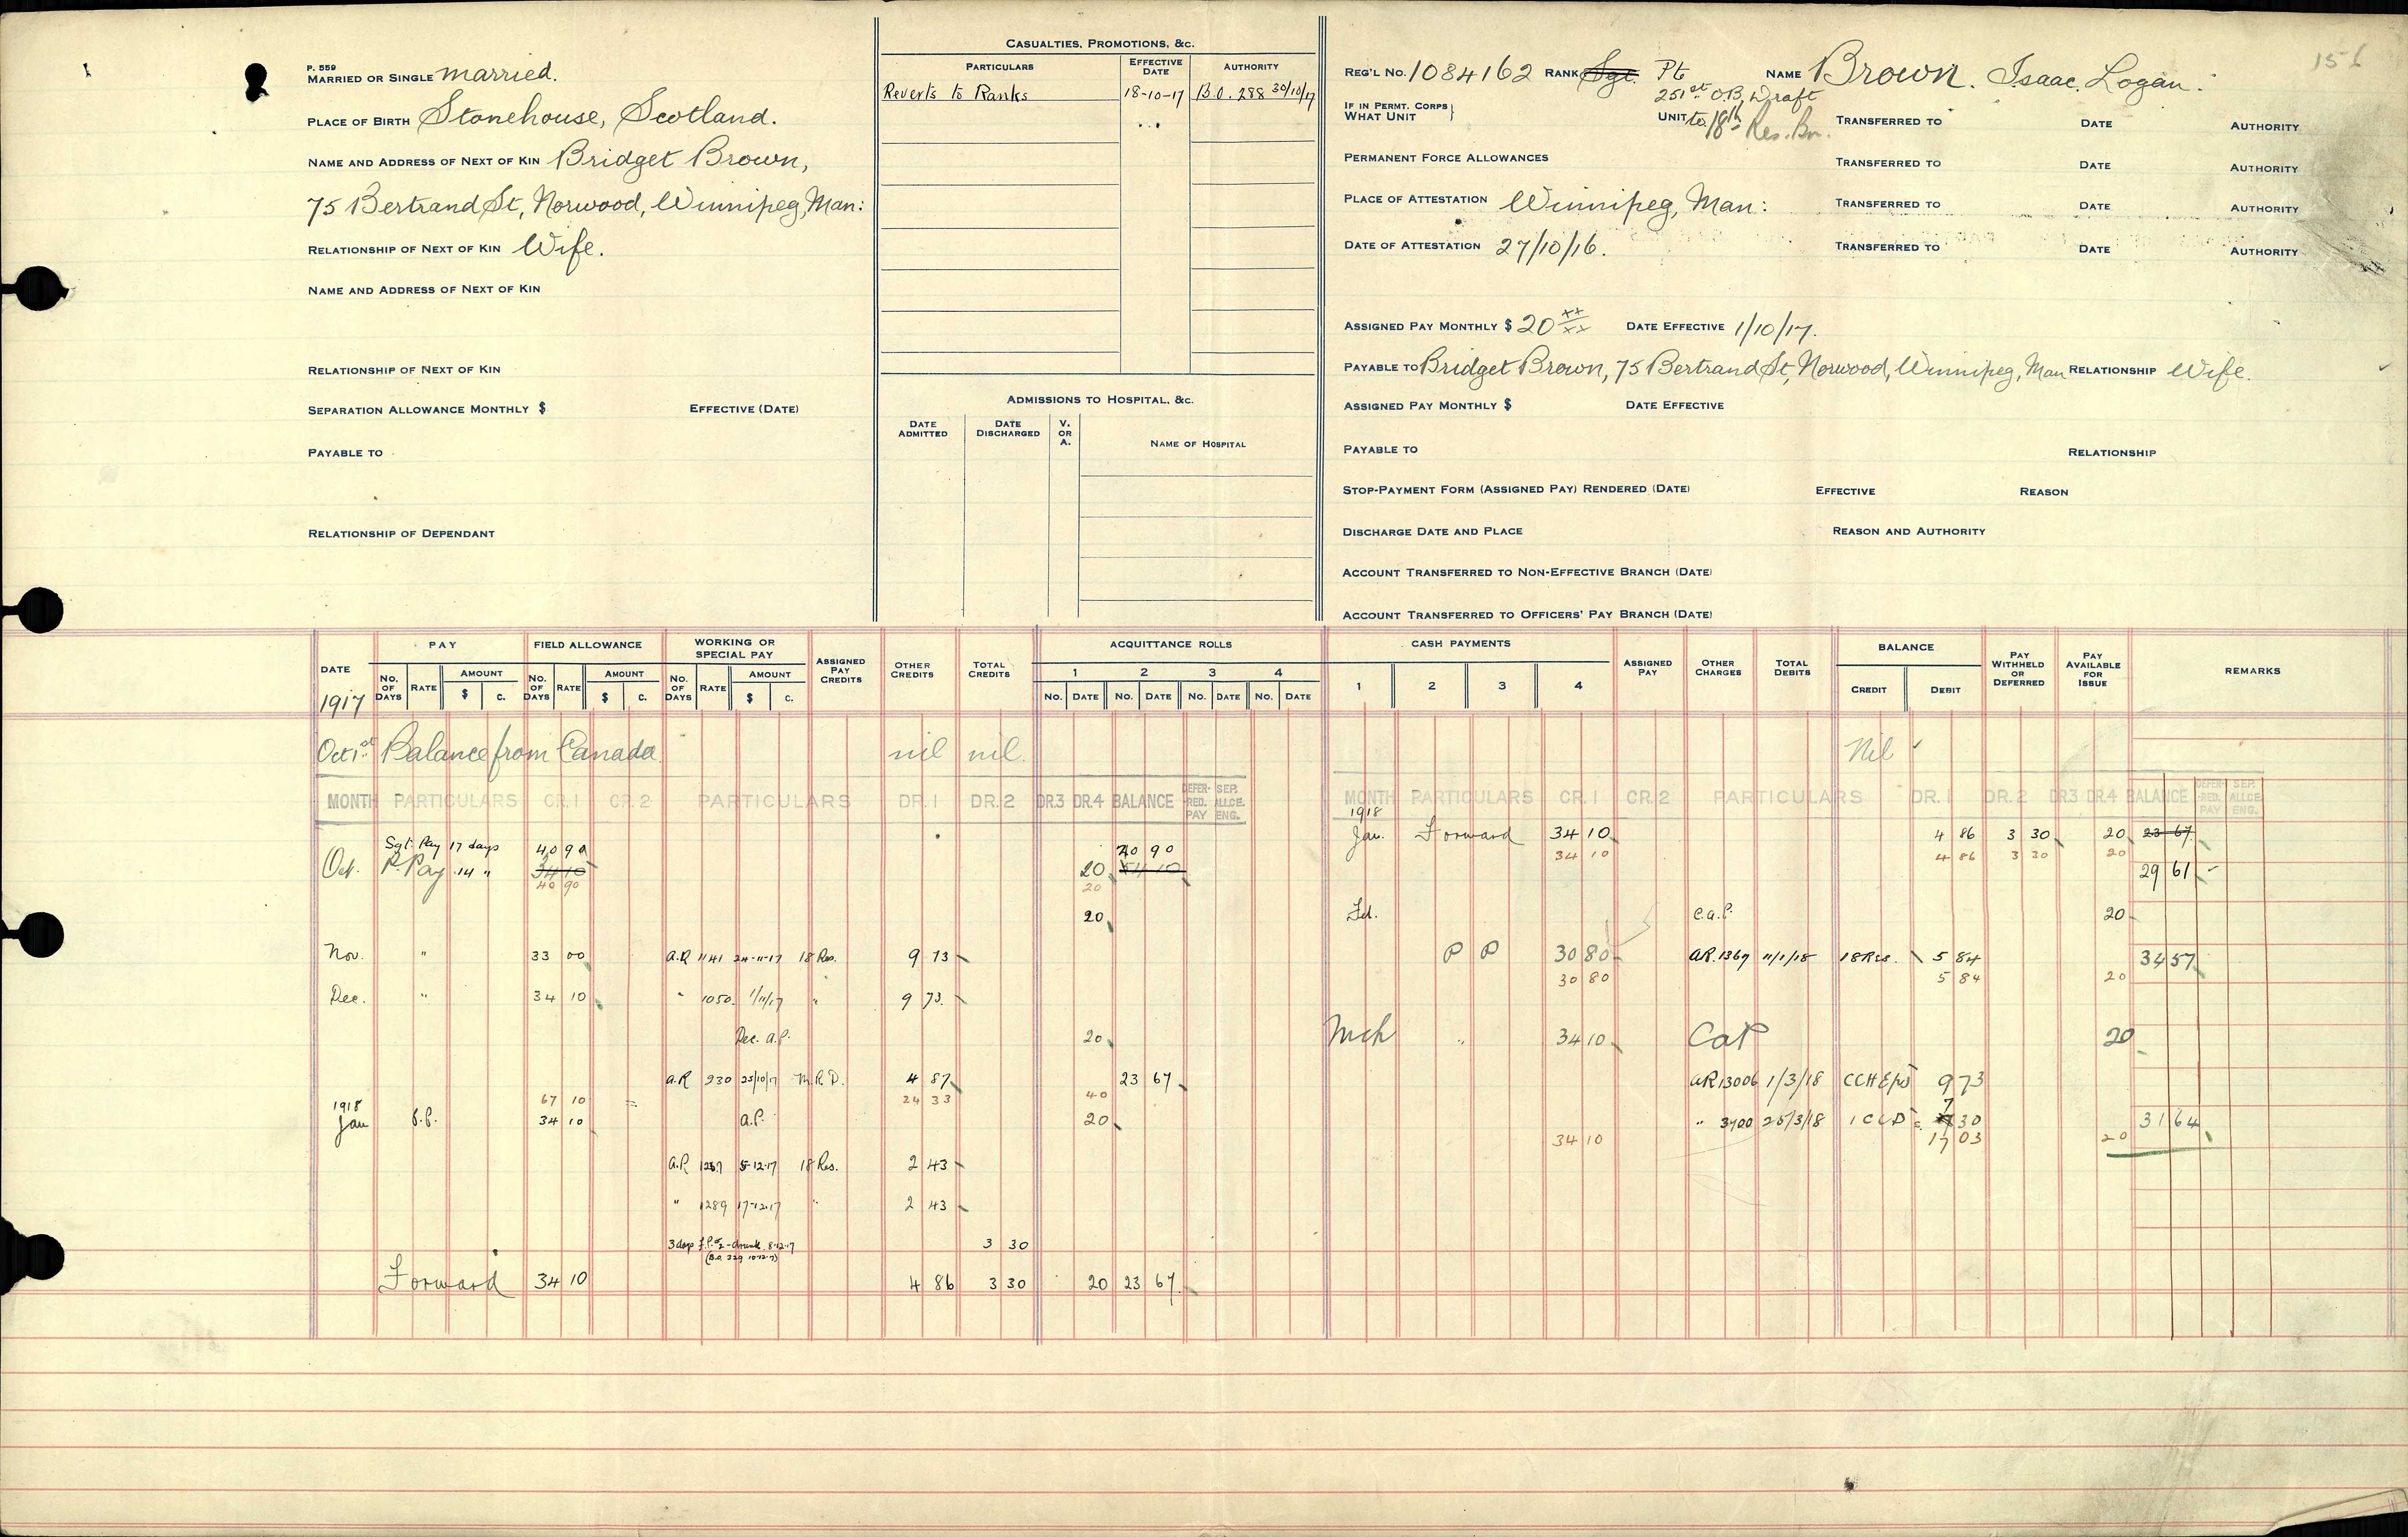 P. 559
MARRIED OR SINGLE married.
PLACE OF BIRTH Stonehouse, Scotland.
NAME AND ADDRESS OF NEXT OF KIN Bridget Brown,
75 Bertrand St, Norwood, Winnipeg, Man:
RELATIONSHIP OF NEXT OF KIN Wife.
NAME AND ADDRESS OF NEXT OF KIN
RELATIONSHIP OF NEXT OF KIN
SEPARATION ALLOWANCE MONTHLY $ EFFECTIVE (DATE)
PAYABLE TO
RELATIONSHIP OF DEPENDANT
CASUALTIES, PROMOTIONS, &C.
PARTICULARS EFFECTIVE DATE AUTHORITY
Reverts to Ranks 18-10-17 B.O. 288 30/10/17
ADMISSIONS TO HOSPITAL, &C.
DATE ADMITTED DATE DISCHARGED V. OR A. NAME OF HOSPITAL
156
REG'L NO. 1084162 RANK Sgt. Pt NAME Brown. Isaac Logan.
IF IN PERMT. CORPS WHAT UNIT UNIT 251st O.B. Draft to 18th Res. Bn. TRANSFERRED TO DATE AUTHORITY
PERMANENT FORCE ALLOWANCES TRANSFERRED TO DATE AUTHORITY
PLACE OF ATTESTATION Winnipeg, Man: TRANSFERRED TO DATE AUTHORITY
DATE OF ATTESTATION 27/10/16. TRANSFERRED TO DATE AUTHORITY
ASSIGNED PAY MONTHLY $ 20 xx/xx DATE EFFECTIVE 1/10/17.
PAYABLE TO Bridget Brown, 75 Bertrand St, Norwood, Winnipeg, Man RELATIONSHIP Wife.
ASSIGNED PAY MONTHLY $ DATE EFFECTIVE
PAYABLE TO RELATIONSHIP
STOP-PAYMENT FORM (ASSIGNED PAY) RENDERED (DATE) EFFECTIVE REASON
DISCHARGE DATE AND PLACE REASON AND AUTHORITY
ACCOUNT TRANSFERRED TO NON-EFFECTIVE BRANCH (DATE)
ACCOUNT TRANSFERRED TO OFFICERS' PAY BRANCH (DATE)
DATE PAY FIELD ALLOWANCE WORKING OR SPECIAL PAY ASSIGNED PAY CREDITS OTHER CREDITS TOTAL CREDITS ACQUITTANCE ROLLS CASH PAYMENTS ASSIGNED PAY OTHER CHARGES TOTAL DEBITS BALANCE PAY WITHHELD OR DEFERRED PAY AVAILABLE FOR ISSUE REMARKS
NO. OF DAYS RATE AMOUNT $ C. NO. OF DAYS RATE AMOUNT $ C. NO. OF DAYS RATE AMOUNT $ C. 1 2 3 4 1 2 3 4 CREDIT DEBIT
1917 NO. DATE NO. DATE NO. DATE NO. DATE
Oct 1st Balance from Canada nil nil. Nil
MONTH PARTICULARS CR.1 CR.2 PARTICULARS DR.1 DR.2 DR.3 DR.4 BALANCE DEFERRED PAY SEP. ALLCE. ENG.
MONTH PARTICULARS CR.1 CR.2 PARTICULARS DR.1 DR.2 DR.3 DR.4 BALANCE DEFERRED PAY SEP. ALLCE. ENG.
Sgt. Pay 17 days 40 90 20 90
Oct. P. Pay 14 " 34 10 20
40 90 20
20
Nov. " 33 00 A.R 1141 24-11-17 18 Res. 9 73
Dec. " 34 10 " 1050. 1/11/17 " 9 73.
Dec. a.P. 20
A.R 930 25/10/17 M.R.D. 4 87 23 67
67 10 24 33 40
1918
Jan P.P. 34 10 a.P. 20
A.R 1237 5-12-17 18 Res. 2 43
" 1289 17-12-17 " 2 43
3 days F.P. No 2 - drunk 8-12-17 3 30
(B.O. 329 10-12-17)
Forward 34 10 4 86 3 30 20 23 67
1918
Jan. Forward 34 10 4 86 3 30 20 23 67
34 10 4 86 3 30 20
29 61
Fd. C.a.P. 20
P P 30 80 AR.1369 11/1/18 18 Res. 5 84 34 57
30 80 5 84 20
Mch " 34 10 CaP 20
AR 13006 1/3/18 9 73
" 3400 25/3/18 7 30 31 64
34 10 17 03 20